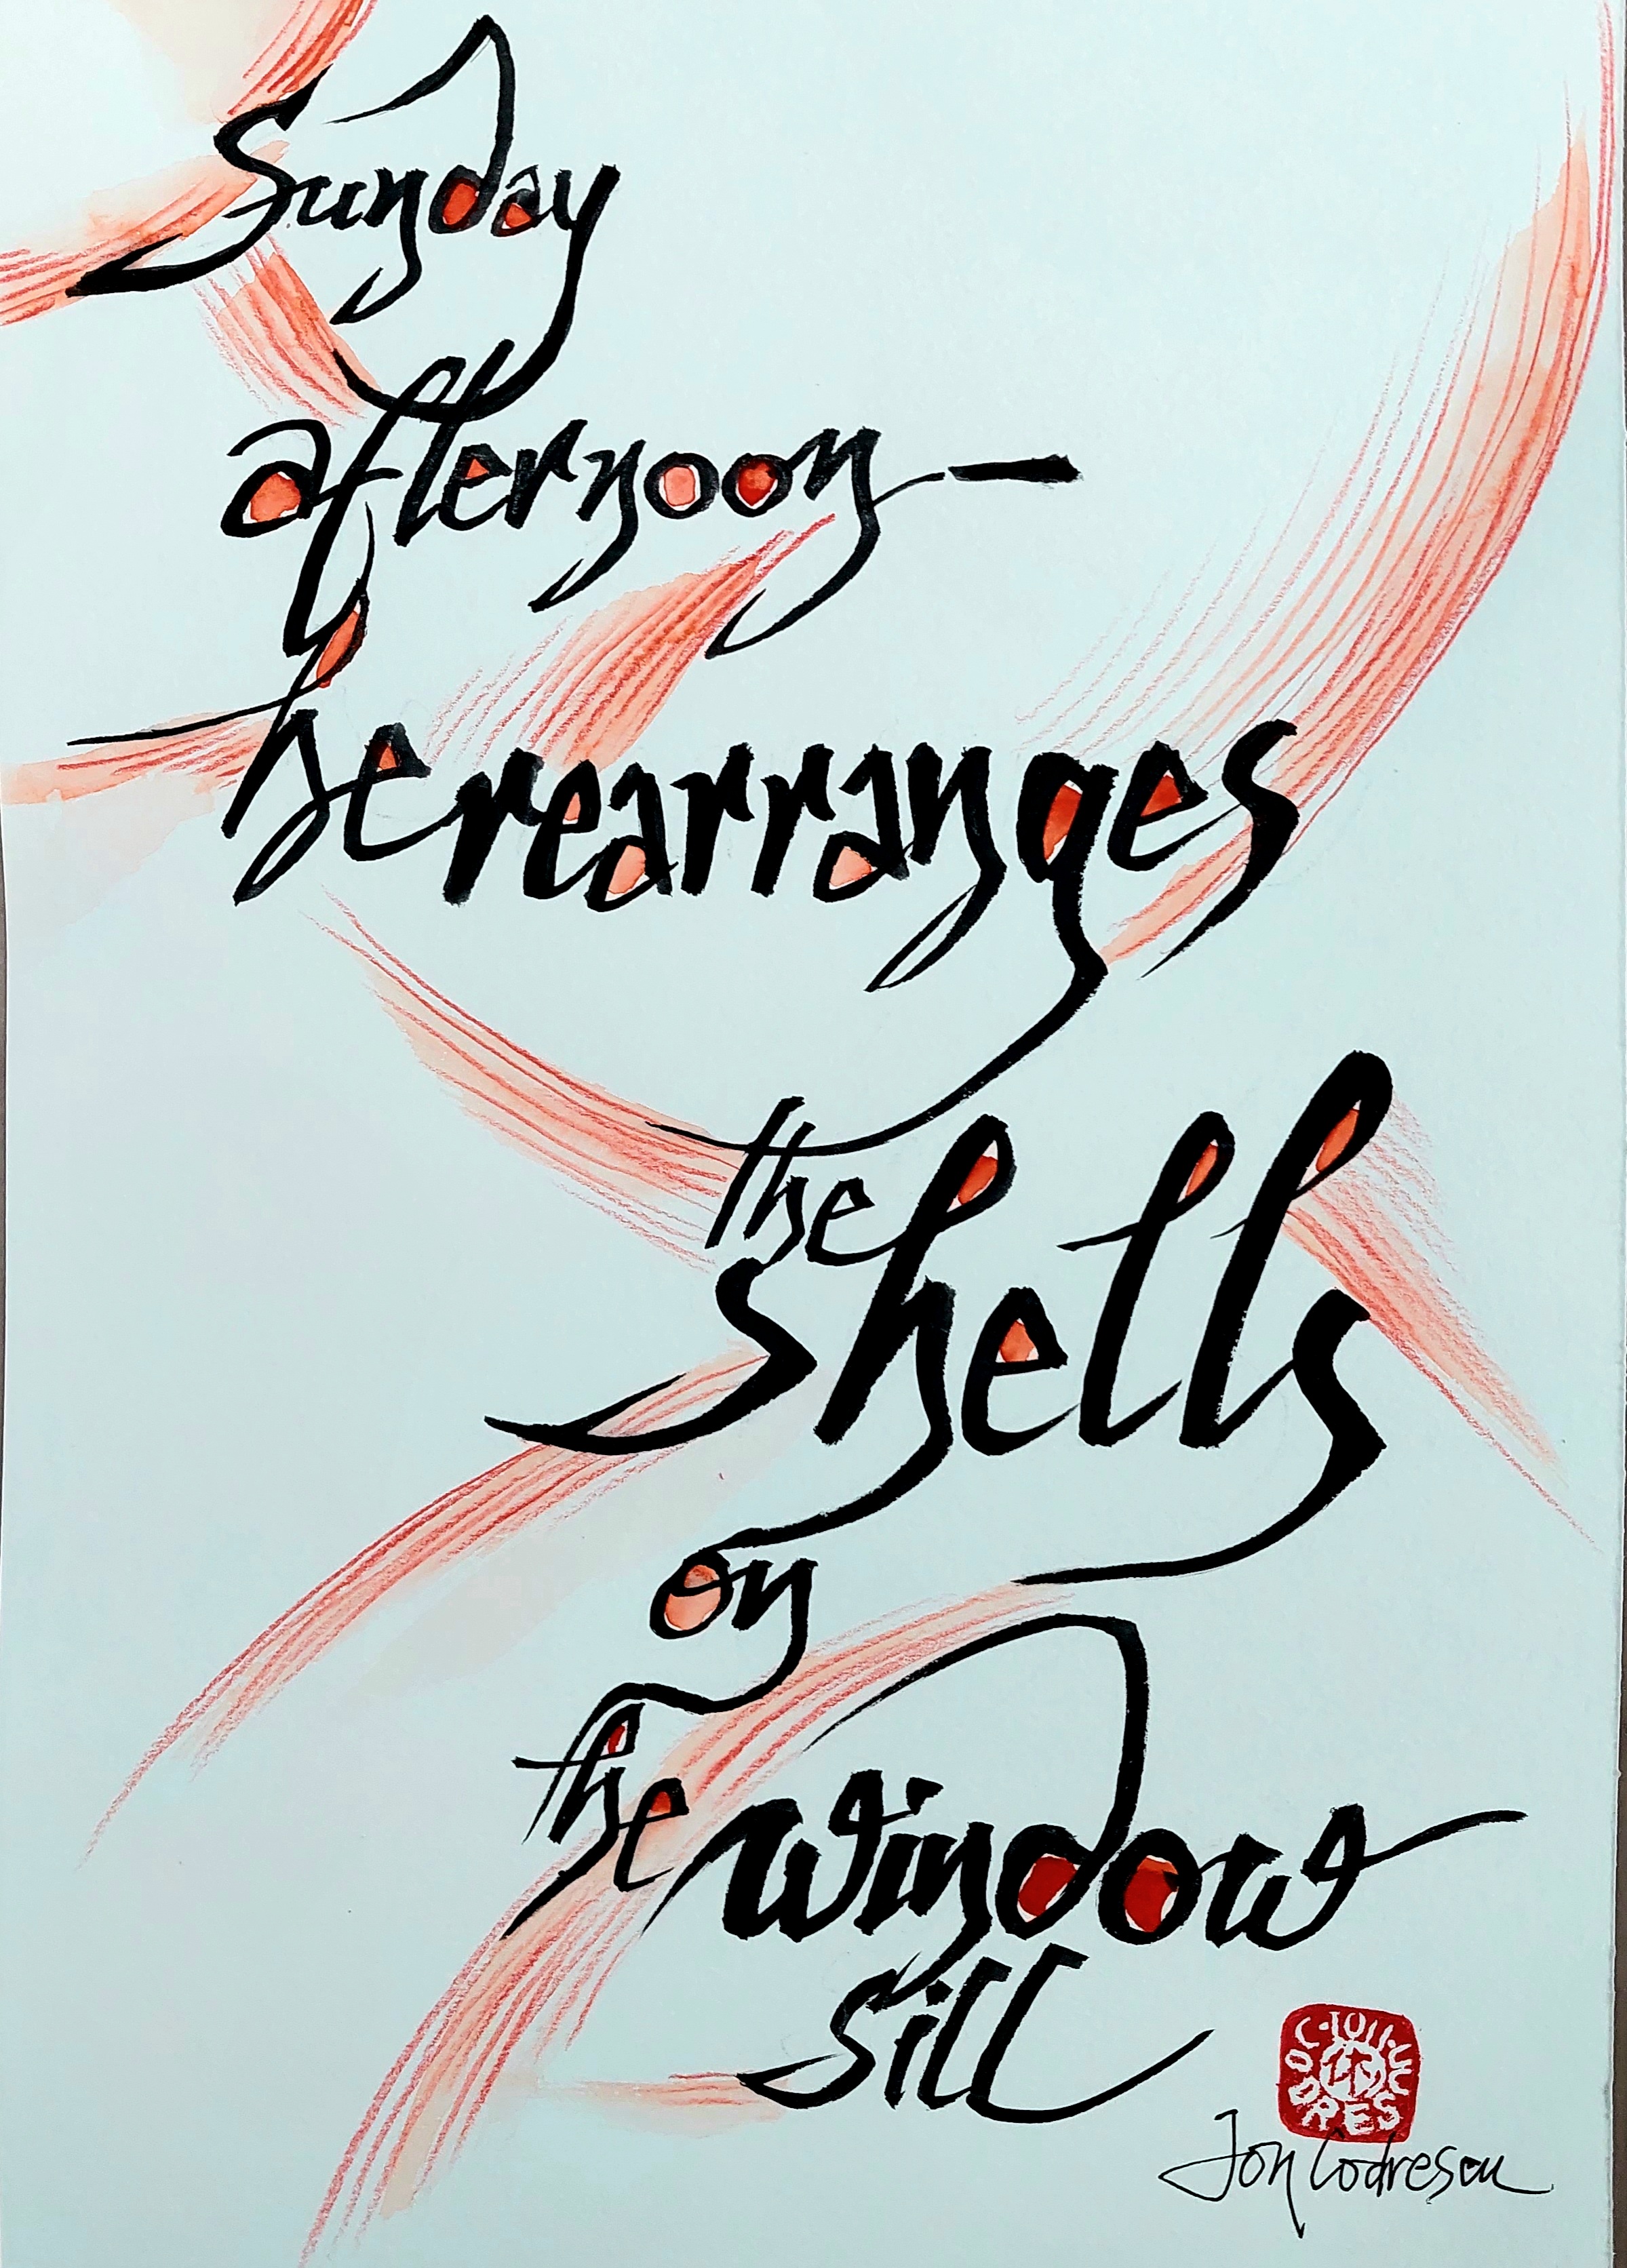 Sunday
afternoon —
he rearranges
the
shells
on
the window
sill
Ion Codrescu